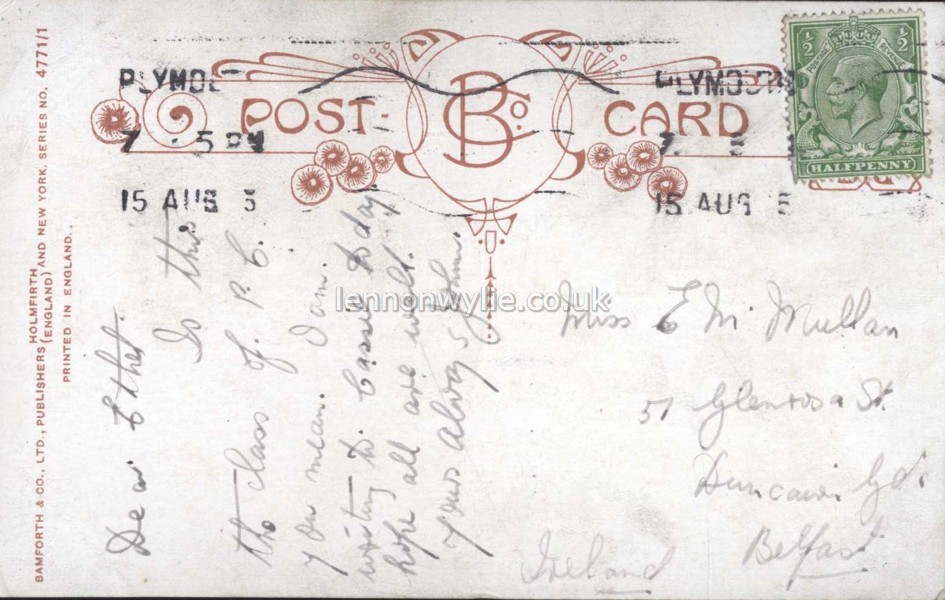 BAMFORTH & CO., LTD., PUBLISHERS HOLMFIRTH (ENGLAND) AND NEW YORK. SERIES NO. 4771/1
PRINTED IN ENGLAND.
POST CARD
B Co.
PLYMOUTH
5 PM
15 AUG
PLYMOUTH
15 AUG
POSTAGE REVENUE
½ ½
HALFPENNY
Dear Ethel.
Is this
the class of P. C.
you mean. I am
writing to Cassie to day
hope all are well.
yours always John.
Miss E Mc Mullan
51 Glenrosa St.
Duncairn Gds
Belfast
Ireland
lennonwylie.co.uk